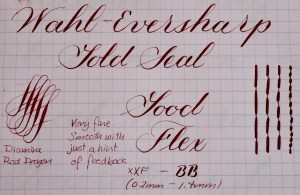 Wahl-Eversharp
Gold Seal
Good
Flex
Diamine
Red Dragon
Very fine
Smooth with
just a hint
of feedback
XXF - BB
(0.2mm - 1.7mm)